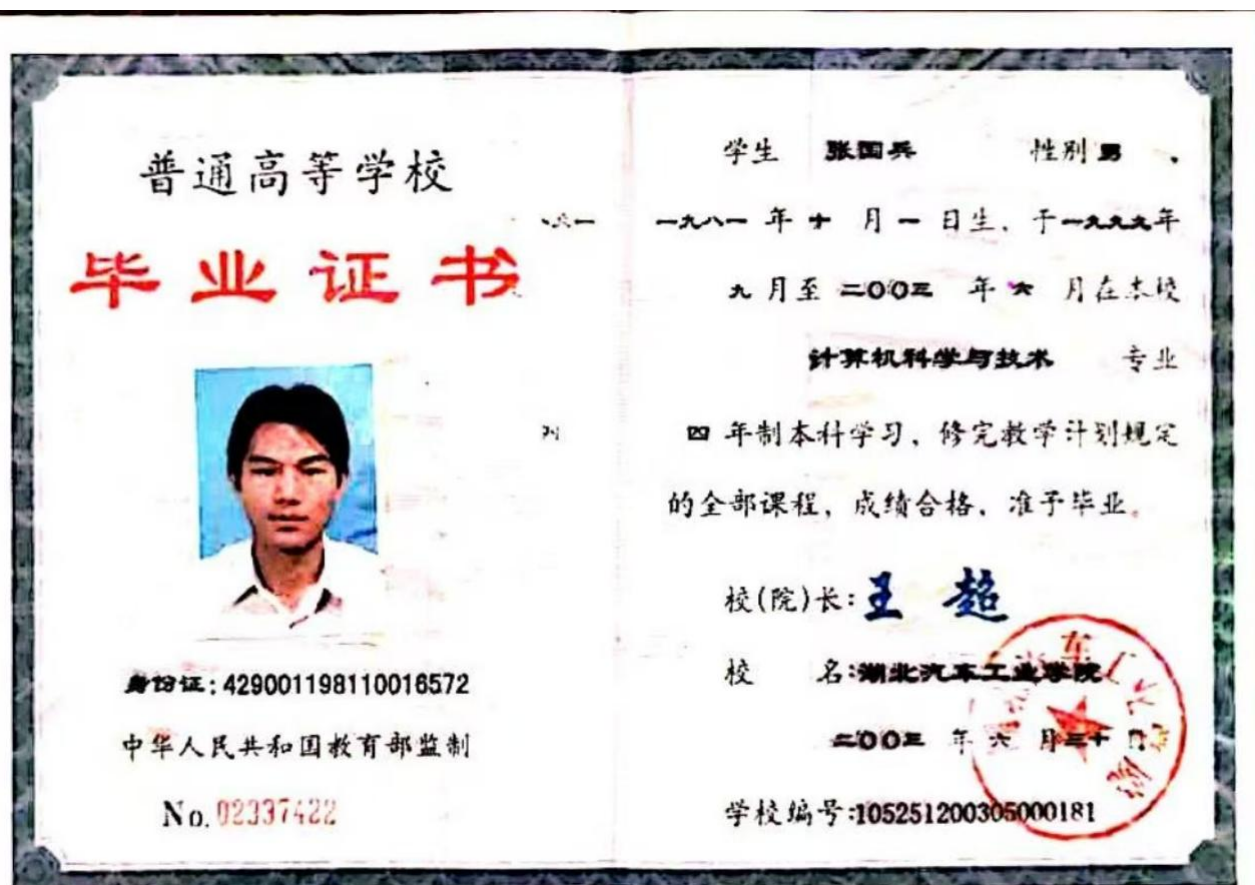 普通高等学校
毕业证书
身份证:429001198110016572
中华人民共和国教育部监制
No.02337422
学生 张国兵 性别 男 、
一九八一 年 十 月 一 日生、于一九九九年
九 月至 二〇〇三 年 六 月在本校
计算机科学与技术 专业
四 年制本科学习、修完教学计划规定
的全部课程，成绩合格、准予毕业。
校(院)长:王 超
校 名:湖北汽车工业学院
二〇〇三 年 六 月三十日
学校编号:105251200305000181